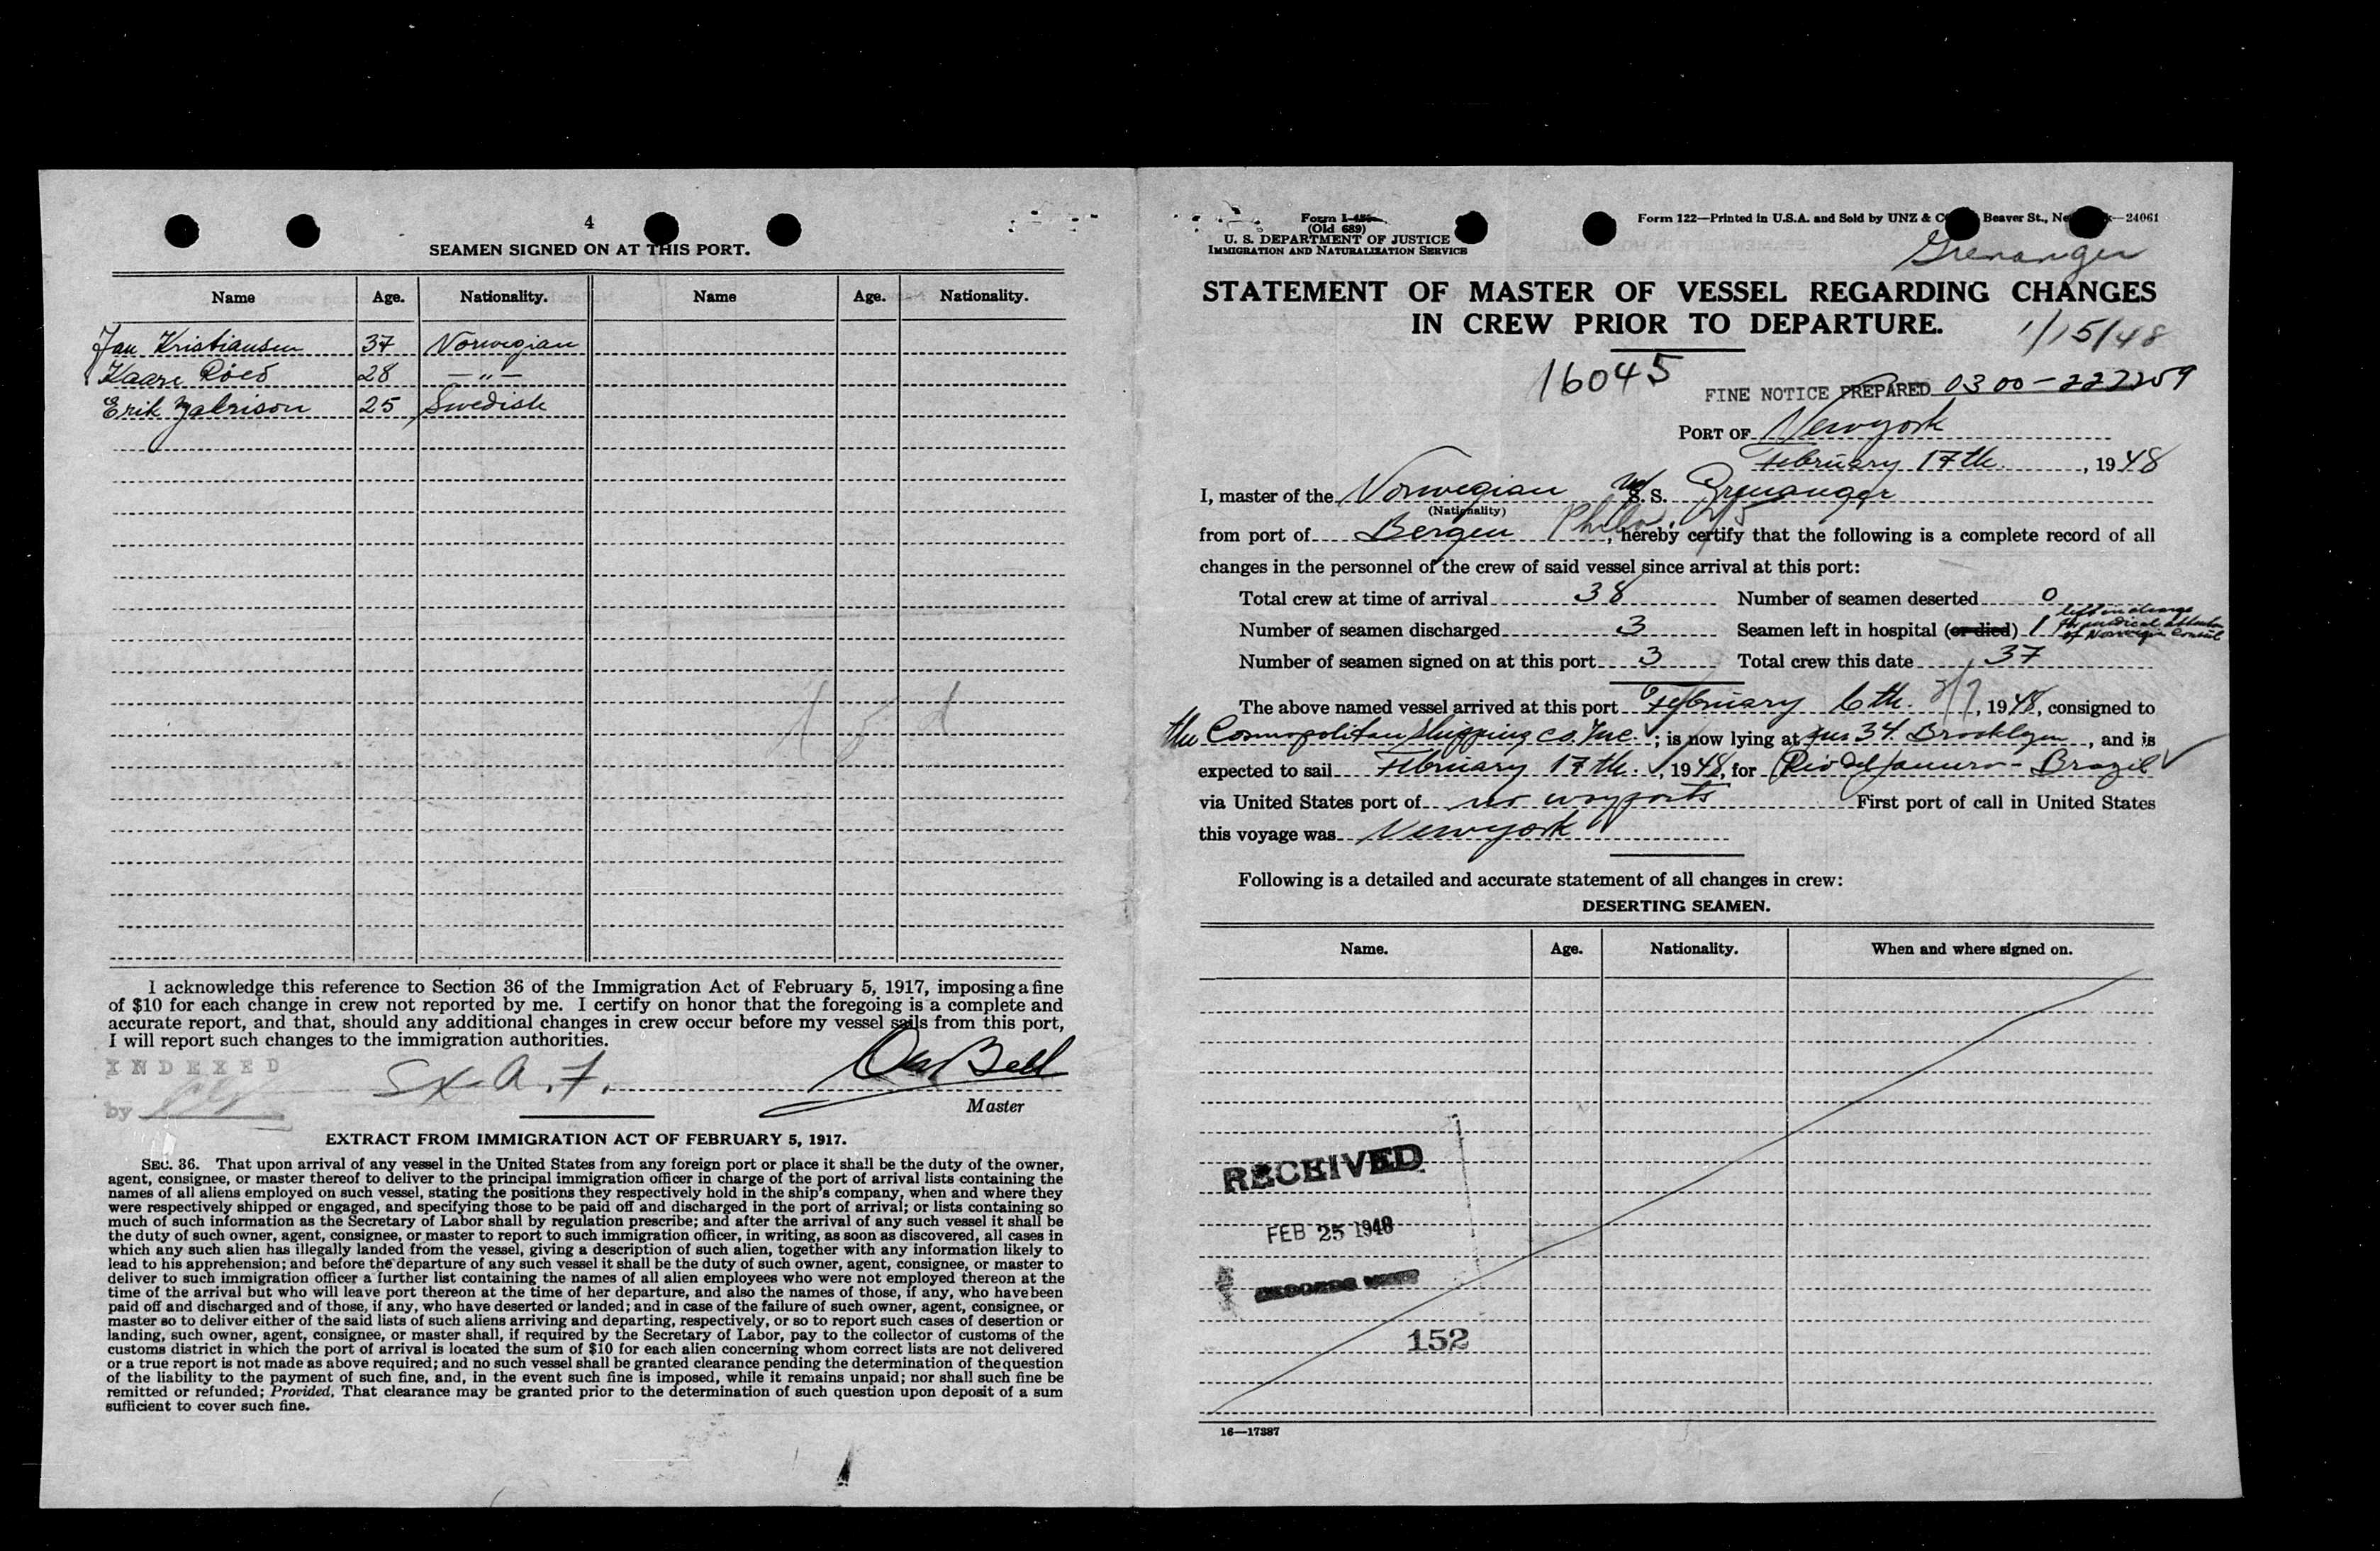 4
SEAMEN SIGNED ON AT THIS PORT.
Name Age. Nationality. Name Age. Nationality.
Jan Kristiansen 37 Norwegian
Kaare 28 — " —
Erik 25 Swedish
I acknowledge this reference to Section 36 of the Immigration Act of February 5, 1917, imposing a fine
of $10 for each change in crew not reported by me. I certify on honor that the foregoing is a complete and
accurate report, and that, should any additional changes in crew occur before my vessel sails from this port,
I will report such changes to the immigration authorities.
INDEXED
by
Master
EXTRACT FROM IMMIGRATION ACT OF FEBRUARY 5, 1917.
SEC. 36. That upon arrival of any vessel in the United States from any foreign port or place it shall be the duty of the owner,
agent, consignee, or master thereof to deliver to the principal immigration officer in charge of the port of arrival lists containing the
names of all aliens employed on such vessel, stating the positions they respectively hold in the ship's company, when and where they
were respectively shipped or engaged, and specifying those to be paid off and discharged in the port of arrival; or lists containing so
much of such information as the Secretary of Labor shall by regulation prescribe; and after the arrival of any such vessel it shall be
the duty of such owner, agent, consignee, or master to report to such immigration officer, in writing, as soon as discovered, all cases in
which any such alien has illegally landed from the vessel, giving a description of such alien, together with any information likely to
lead to his apprehension; and before the departure of any such vessel it shall be the duty of such owner, agent, consignee, or master to
deliver to such immigration officer a further list containing the names of all alien employees who were not employed thereon at the
time of the arrival but who will leave port thereon at the time of her departure, and also the names of those, if any, who have been
paid off and discharged and of those, if any, who have deserted or landed; and in case of the failure of such owner, agent, consignee, or
master so to deliver either of the said lists of such aliens arriving and departing, respectively, or so to report such cases of desertion or
landing, such owner, agent, consignee, or master shall, if required by the Secretary of Labor, pay to the collector of customs of the
customs district in which the port of arrival is located the sum of $10 for each alien concerning whom correct lists are not delivered
or a true report is not made as above required; and no such vessel shall be granted clearance pending the determination of the question
of the liability to the payment of such fine, and, in the event such fine is imposed, while it remains unpaid; nor shall such fine be
remitted or refunded; Provided, That clearance may be granted prior to the determination of such question upon deposit of a sum
sufficient to cover such fine.
Form
(Old 689)
U. S. DEPARTMENT OF JUSTICE
IMMIGRATION AND NATURALIZATION SERVICE
Form 122—Printed in U.S.A. and Sold by UNZ & Beaver St., —24061
Grenanger
STATEMENT OF MASTER OF VESSEL REGARDING CHANGES
IN CREW PRIOR TO DEPARTURE.
1/15/48
16045
FINE NOTICE PREPARED 0300-
PORT OF Newyork
February 17th. , 1948
I, master of the Norwegian S. S. Grenanger
(Nationality)
from port of Bergen Phila. 2/5, hereby certify that the following is a complete record of all
changes in the personnel of the crew of said vessel since arrival at this port:
Total crew at time of arrival 38 Number of seamen deserted 0
Number of seamen discharged 3 Seamen left in hospital (or died) 1 left in charge for medical of Norwegian Consul
Number of seamen signed on at this port 3 Total crew this date 37
The above named vessel arrived at this port February 6th. 2/7, 1948, consigned to
the Cosmopolitan Shipping Co. Inc.; is now lying at 34. Brooklyn, and is
expected to sail February 17th., 1948, for Rio de Janeiro - Brazil
via United States port of no wayports First port of call in United States
this voyage was Newyork
Following is a detailed and accurate statement of all changes in crew:
DESERTING SEAMEN.
Name. Age. Nationality. When and where signed on.
RECEIVED
FEB 25 1948
152
16—17387